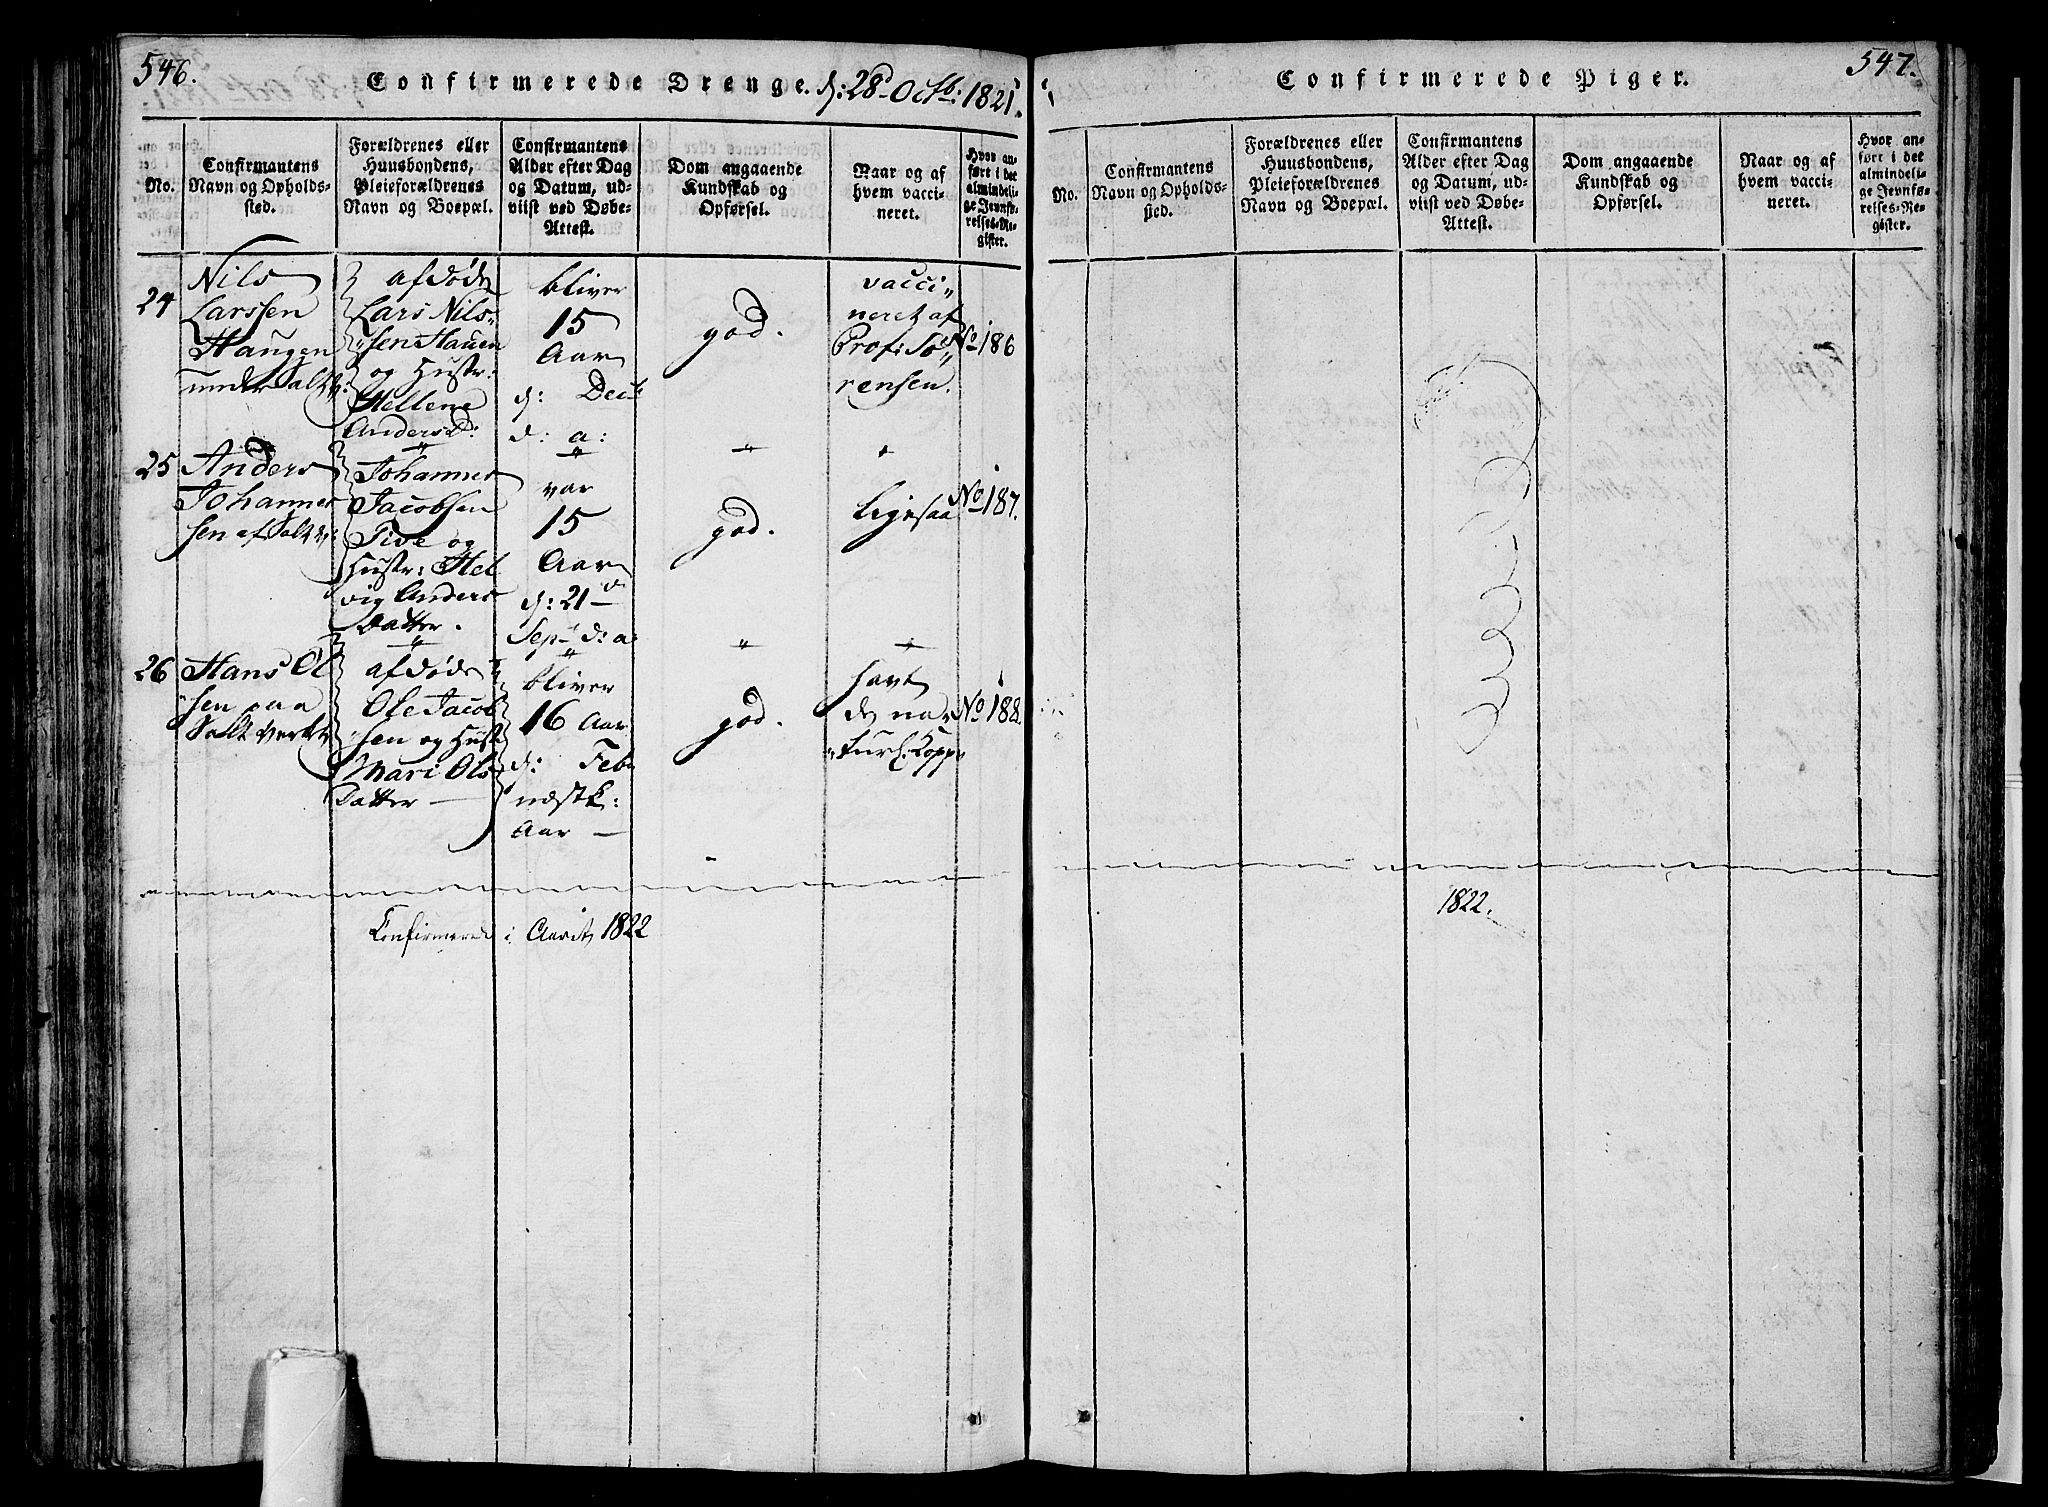 546.
Confirmerede Drenge. d: 28d Octb: 1821.
No.
Confirmantens
Navn og Opholds-
sted.
Forældrenes eller
Huusbondens,
Pleieforældrenes
Navn og Boepæl.
Confirmantens
Alder efter Dag
og Datum, ud-
viist ved Døbe-
Attest.
Dom angaaende
Kundskab og
Opførsel.
Naar og af
hvem vacci-
neret.
Hvor an-
ført i det
almindeli-
ge Jevnfø-
relses-Re-
gister.
24
Nils
Larssen
Haugen
under
afdøde
Lars Nils-
sen Hauen
og Hustr:
Hellene
Anders D:
bliver
15
Aar
d: Decb
d: a:
god.
vacci-
neret af
Prof: Sø-
rensen.
No 186
25
Anders
Johannes
sen af
Johannes
Jacobsen
Tive og
Hustr: Hel
vig Anders
Datter.
var
15
Aar
d: 21d
Sept d: a:
god.
Ligesaa
No 187.
26
Hans Ol
sen paa
Saltverket
afdøde
Ole Jacob
sen og Hust
Mari Ols
Datter
bliver
16 Aar
d: Feb
næstk:
Aar
god.
havt
de na
turl: Kopp
No 188.
Confirmerede i Aaret 1822
547.
Confirmerede Piger.
No.
Confirmantens
Navn og Opholds-
sted.
Forældrenes eller
Huusbondens,
Pleieforældrenes
Navn og Boepæl.
Confirmantens
Alder efter Dag
og Datum, ud-
viist ved Døbe-
Attest.
Dom angaaende
Kundskab og
Opførsel.
Naar og af
hvem vacci-
neret.
Hvor an-
ført i det
almindeli-
ge Jevnfø-
relses-Re-
gister.
1822.